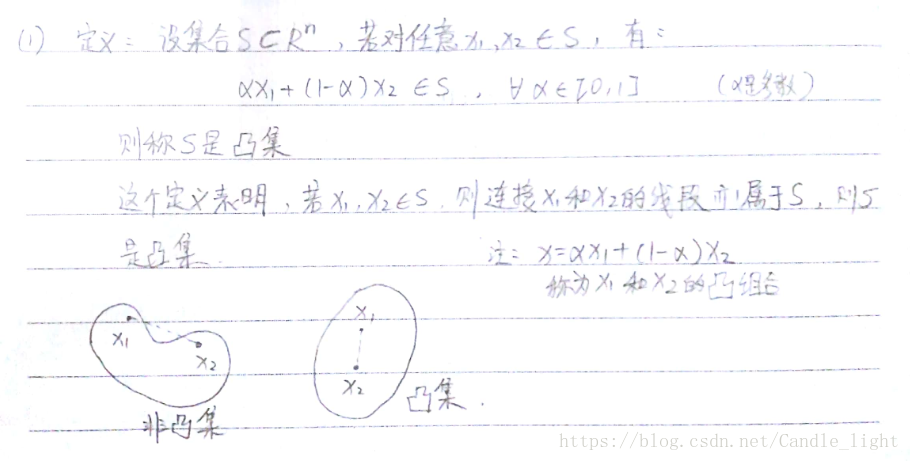 (1) 定义：设集合S⊂Rⁿ，若对任意x₁、x₂∈S，有：
αx₁+(1-α)x₂∈S，∀α∈[0,1] (α是参数)
则称S是凸集
这个定义表明，若x₁、x₂∈S，则连接x₁和x₂的线段亦属于S，则S
是凸集.
注：x=αx₁+(1-α)x₂
称为x₁和x₂的凸组合
x₁
x₂
非凸集
x₁
x₂
凸集.
https://blog.csdn.net/Candle_light